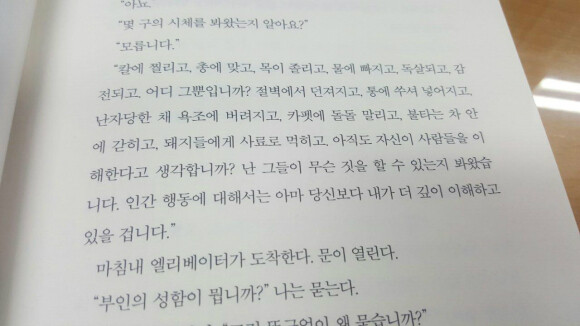 "아뇨."
"몇 구의 시체를 봐왔는지 알아요?"
"모릅니다."
"칼에 찔리고, 총에 맞고, 목이 졸리고, 물에 빠지고, 독살되고, 감
전되고, 어디 그뿐입니까? 절벽에서 던져지고, 통에 쑤셔 넣어지고,
난자당한 채 욕조에 버려지고, 카펫에 돌돌 말리고, 불타는 차 안
에 갇히고, 돼지들에게 사료로 먹히고, 아직도 자신이 사람들을 이
해한다고 생각합니까? 난 그들이 무슨 짓을 할 수 있는지 봐왔습
니다. 인간 행동에 대해서는 아마 당신보다 내가 더 깊이 이해하고
있을 겁니다."
마침내 엘리베이터가 도착한다. 문이 열린다.
"부인의 성함이 뭡니까?" 나는 묻는다.
왜 묻습니까?"